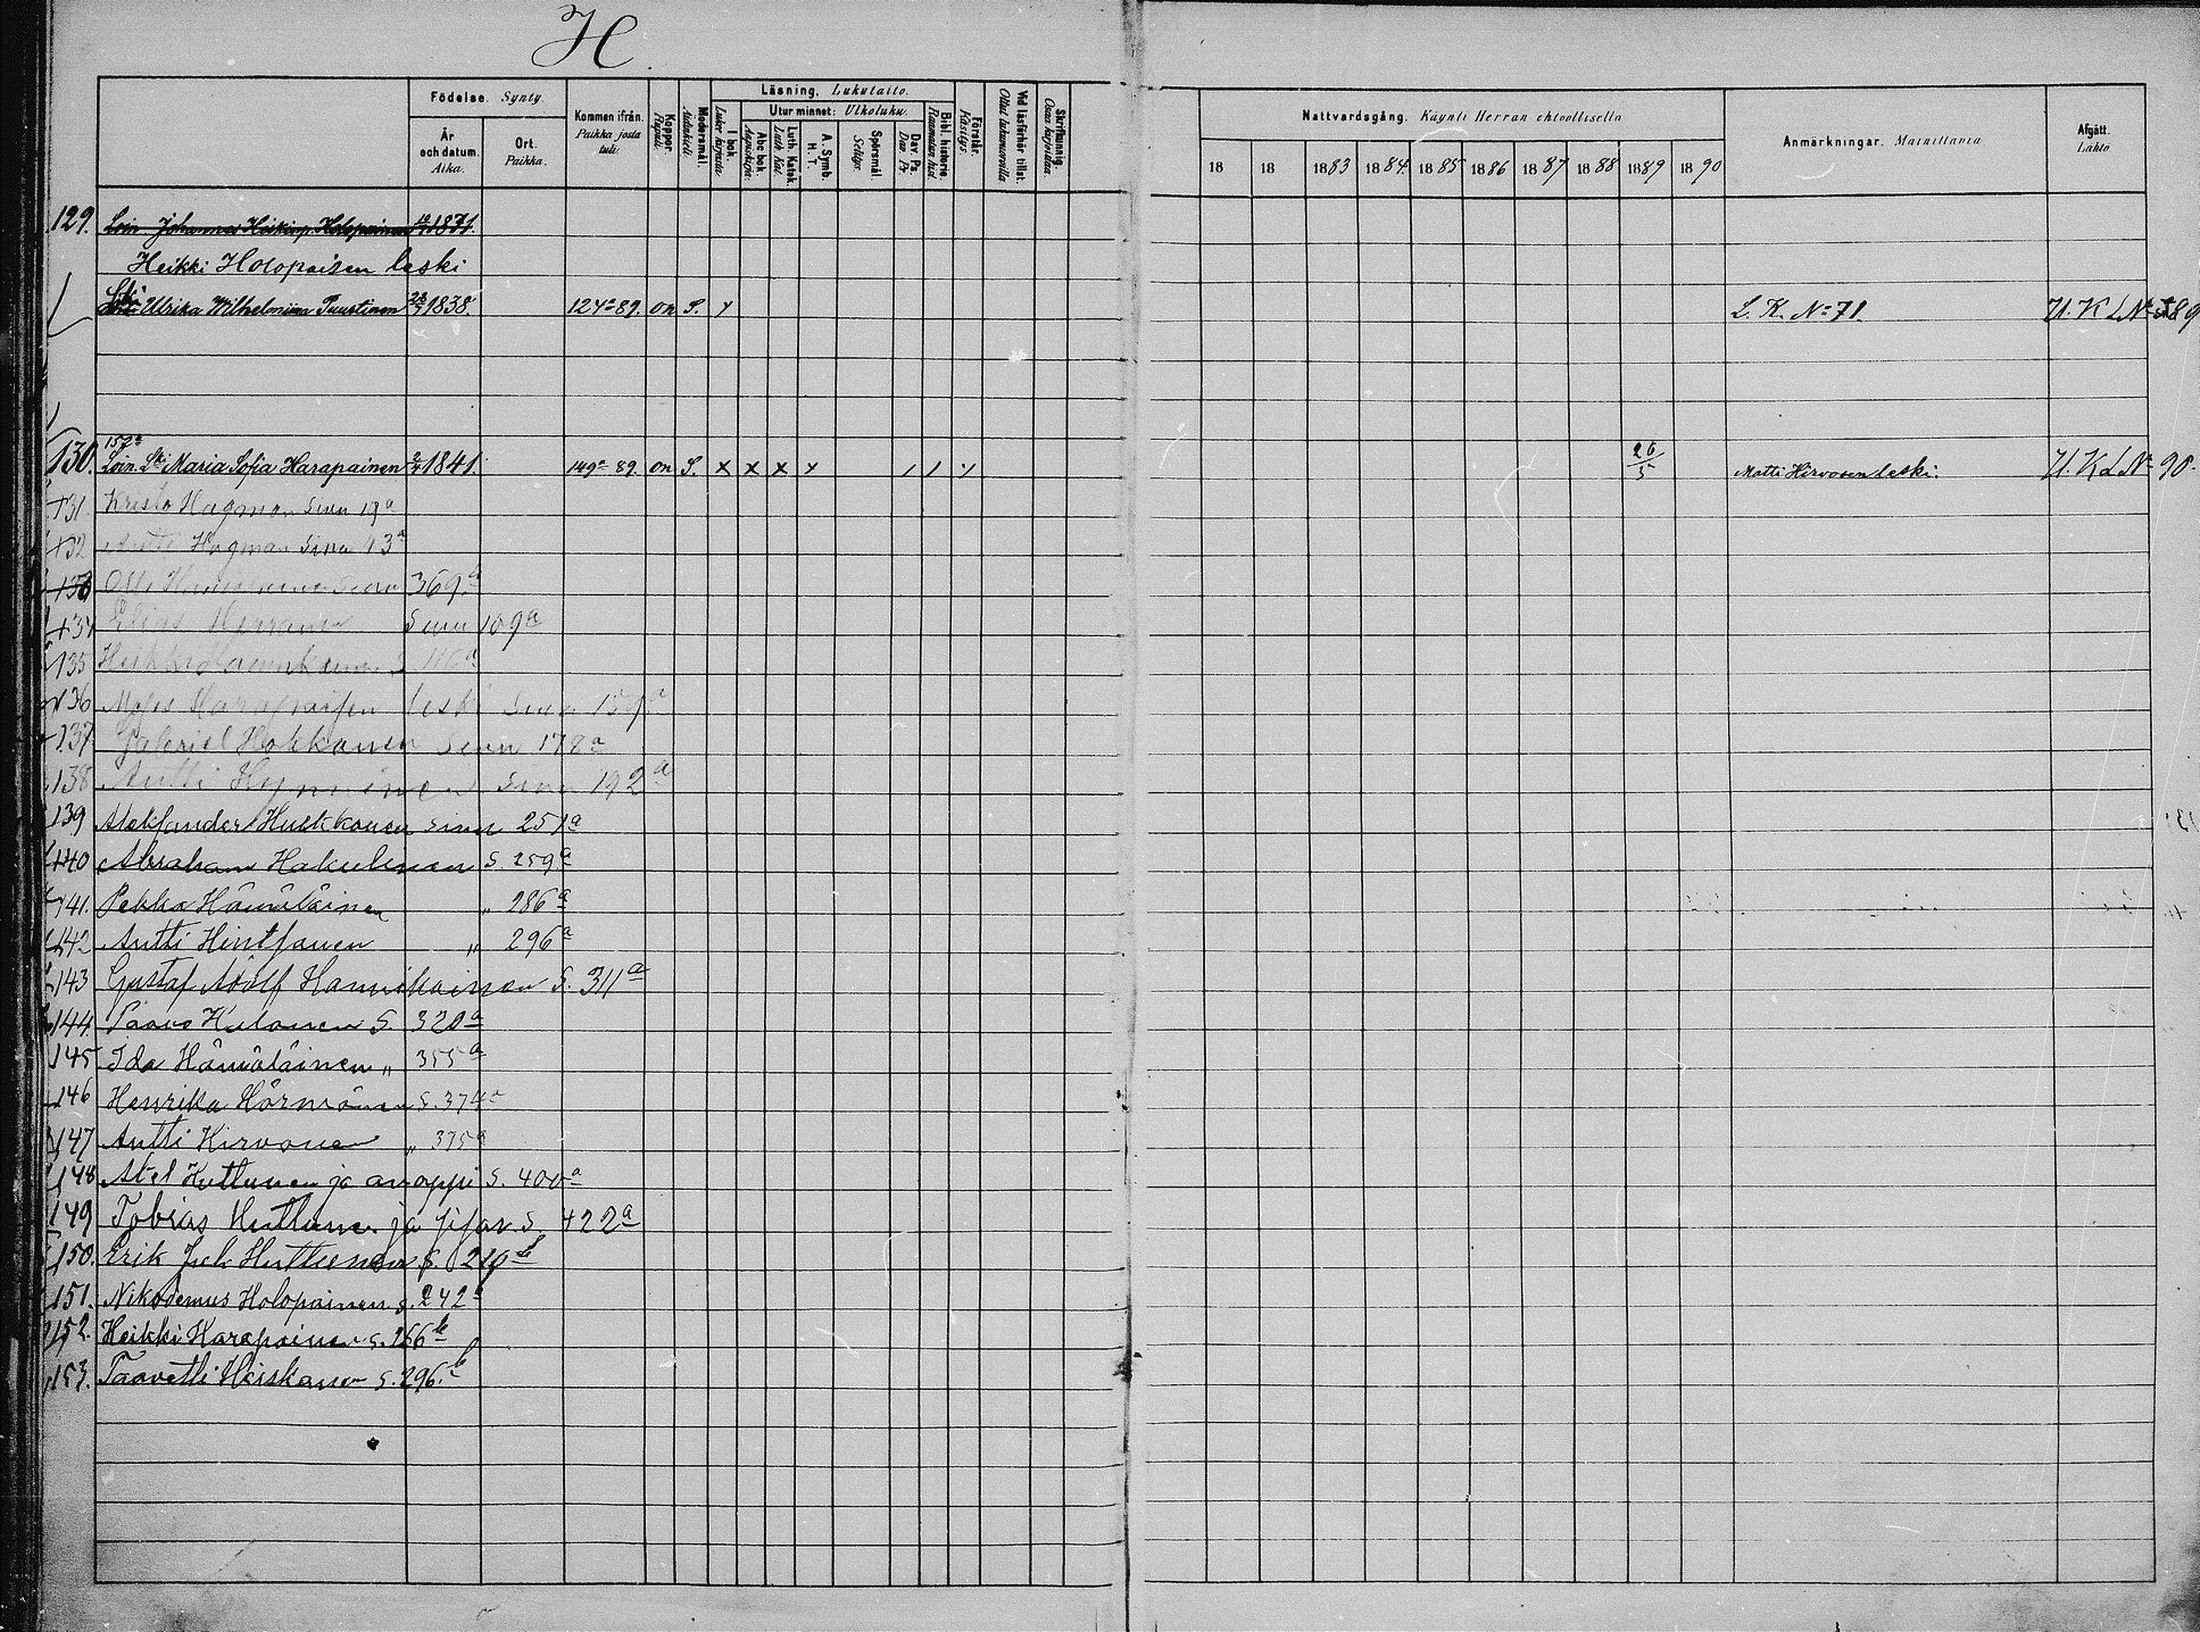 H.
Födelse. Synty.
År och datum. Aika.
Ort. Paikka.
Kommen ifrån. Paikka josta tuli.
Koppor. Rupuli.
Modersmål. Äidinkieli.
Läsning. Lukutaito.
I bok. Lukee kirjasta
Utur minnet: Ulkoluku.
Abc bok. Aapiskirja.
Luth. Katek. Luth. Kat.
A. Symb. H. T.
Spörsmål. Selitys.
Dav. Ps. Dav. Ps.
Bibl. historie. Raamatun hist.
Förstår. Käsitys.
Vid läsförhör tillst. Ollut lukuvuorolla
Skrifkunnig. Osaa kirjoittaa
Nattvardsgång. Käynti Herran ehtoollisella
18 18 1883 1884 1885 1886 1887 1888 1889 1890
Anmärkningar. Mainittavia
Afgått. Lähtö
129. Loin Johannes Heikinp. Holopainen 1871.
Heikki Holopaisen leski
Ulrika Wilhelmiina Puustinen 1838. 124a 89. on S. L. K. No 71. U. K L No 89
152a
130. Loin. Ski Maria Sofia Harapainen 1841. 149a 89. on S. x x x 20/5 Matti Hirvosen leski. U. K L No 90.
131. Kristo Hagman sivu 19a
132 Antti Hagman sivu 43a
133 369a
134 Elias sivu 109a
135 Heikki
136 Harapaisen leski sivu
137 Gabriel Hokkanen sivu 178a
138 Antti sivu 192a
139 Aleksander Hukkanen sivu 251a
140 Abraham Hakulinen S. 259a
141. Pekka Hämäläinen " 286a
142 Antti Hintsanen " 296a
143 Gustaf Adolf Hannikainen S. 311a
144. Paavo Hulonen S. 320a
145 Ida Hämäläinen " 355a
146 Henrika S. 374a
147 Antti Hirvonen " 375a
148 Huttunen ja anoppi S. 400a
149 Tobias Huttunen ja sisar S. 422a
150. Erik Juh. Huttunen S. 210b
151. Nikodemus Holopainen s. 242a
152. Heikki Harapainen s. 266b
153. Taavetti Heiskanen s. 296b